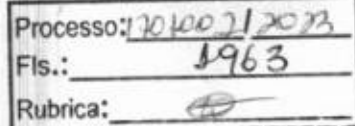 Processo: 170100021/2023
Fls.: 1963
Rubrica: